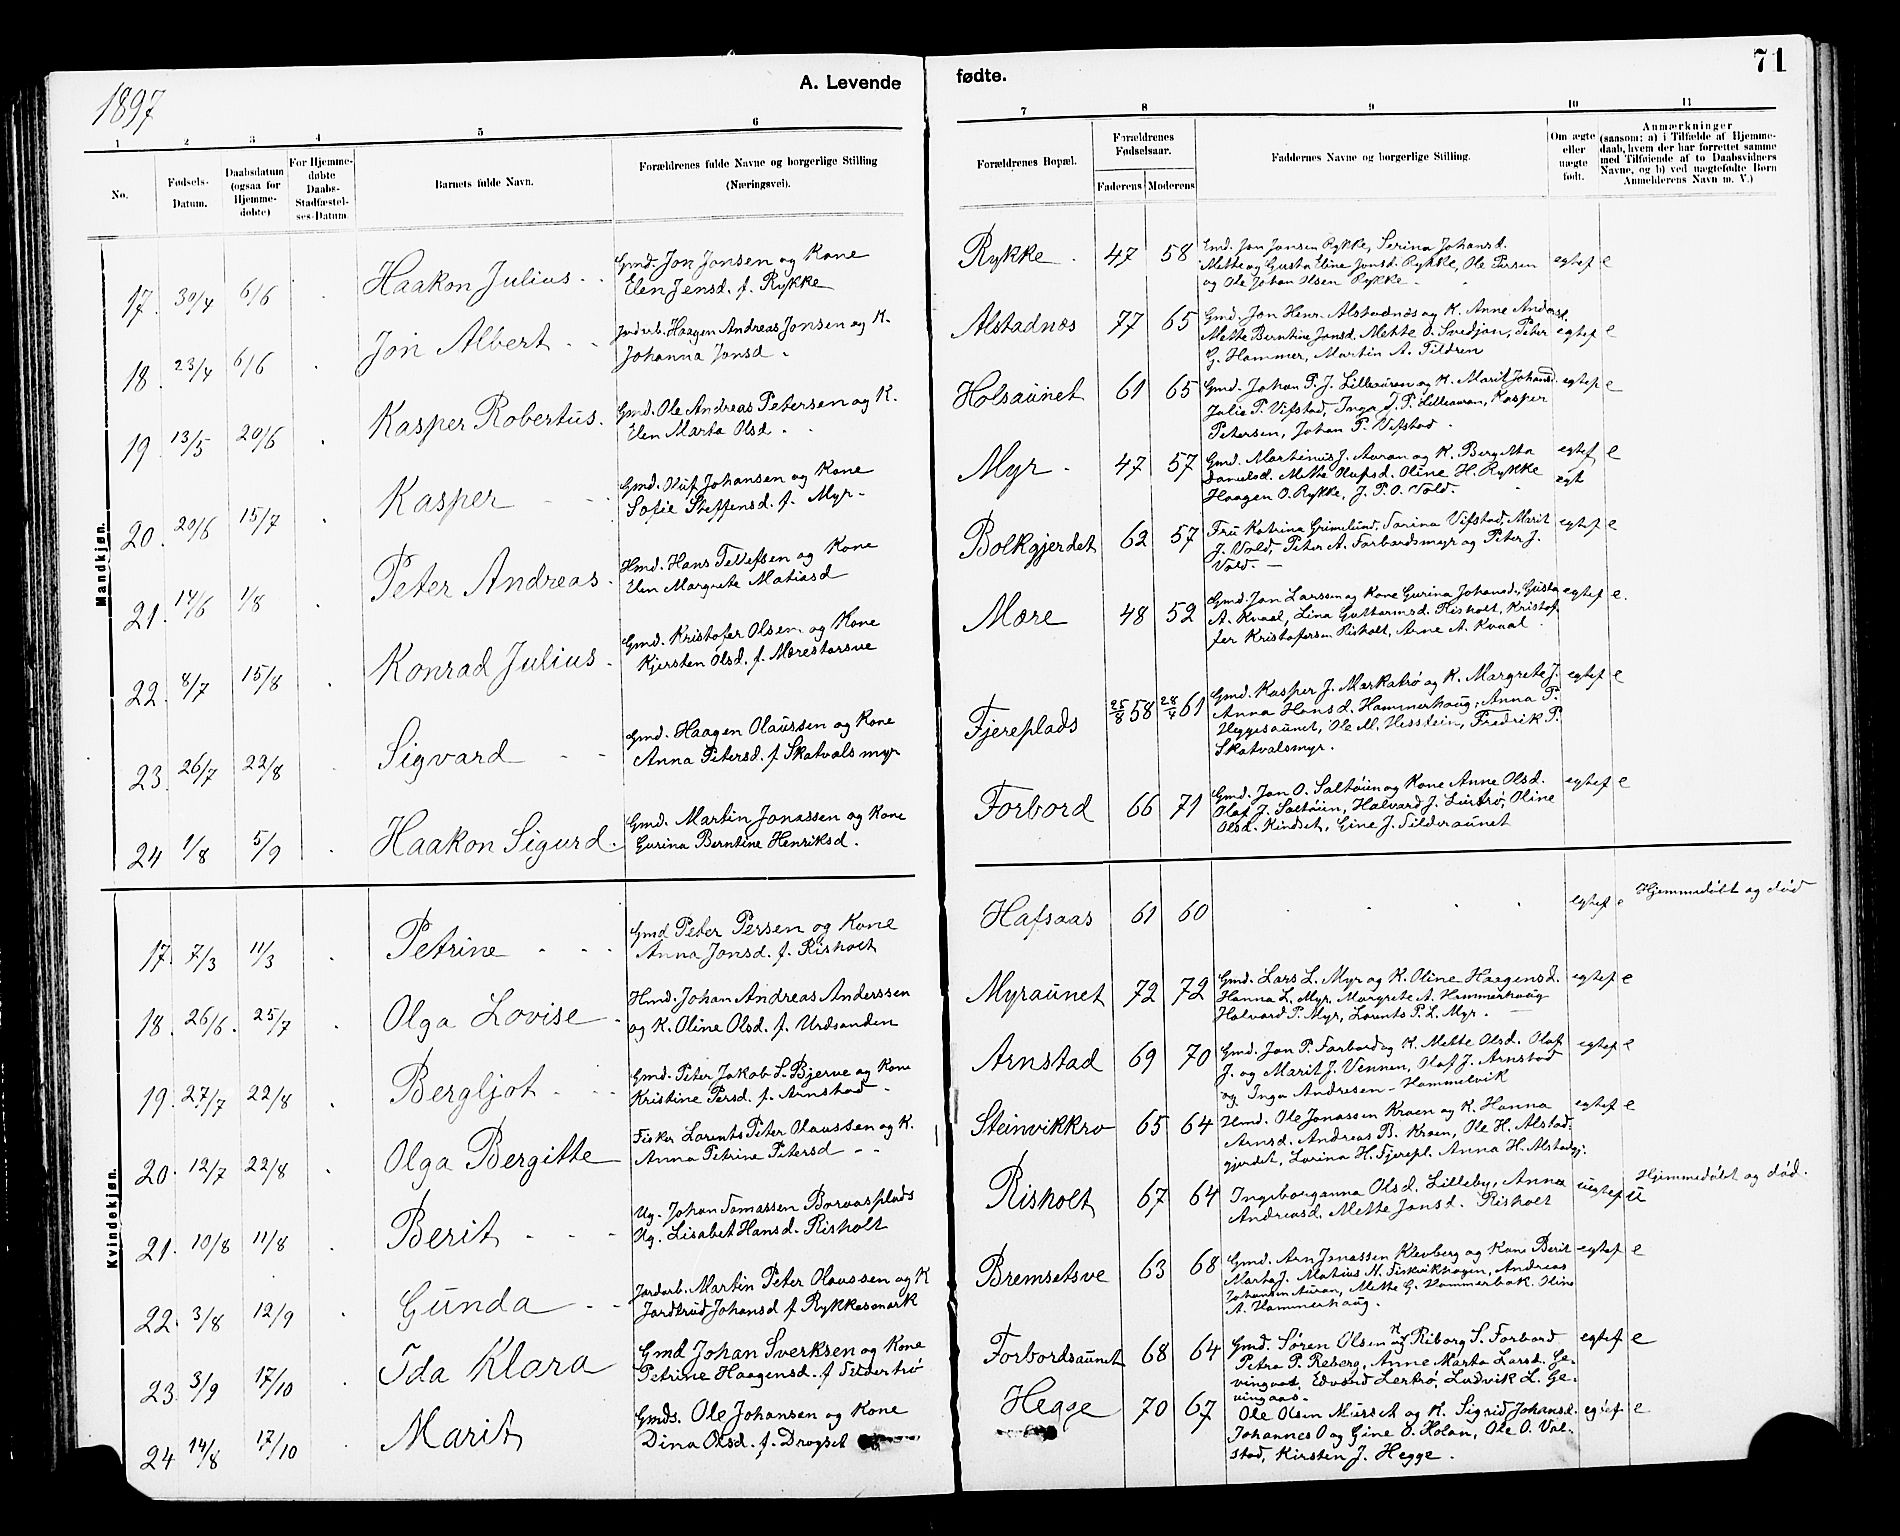 1897
A. Levende fødte.
71
1 2 3 4 5 6 7 8 9 10 11
No.
Fødsels-Datum.
Daabsdatum (ogsaa for Hjemme-døbte)
For Hjemme-døbte Daabs-Stadfæstel-ses-Datum
Barnets fulde Navn.
Forældrenes fulde Navne og borgerlige Stilling (Næringsvei).
Forældrenes Bopæl.
Forældrenes Fødselsaar.
Faderens Moderens
Faddernes Navne og borgerlige Stilling.
Om ægte eller uægte født.
Anmærkninger
(saasom: a) i Tilfælde af Hjemme-
daab, hvem der har forrettet samme
med Tilføiende af to Daabsvidners
Navne, og b) ved uægtefødte Børn
Anmelderens Navn m. V.)
Mandkjøn.
17. 30/4 6/6 Haakon Julius
Gmd. Jon Jonsen og Kone
Elen Jensd. f. Rykke
Rykke 47 58
Gmd. Jon Jonsen Rykke, Serina Johansd.
Mette og Gusta Eline Jonsd. Rykke, Ole Persen
og Ole Johan Olsen Rykke
egtef e
18. 23/4 6/6 Jon Albert
Jordarb. Haagen Andreas Jonsen og K.
Johanna Jonsd
Alstadnæs 77 65
Gmd. Jon Henr. Alstadnæs og K. Anne Andersd.
Mette Berntine Jonsd. Mette O. Svedjan, Peter
G. Hammer, Martin A. Tildren
egtef e
19. 13/5 20/6 Kasper Robertus
Gmd. Ole Andreas Petersen og K.
Elen Marta Olsd
Holsaunet 61 65
Gmd. Johan P. J. Lilleauren og K. Marit Johansd
Julie P. Vifstad, Inga J. P. Lilleauran, Kasper
Petersen, Johan P. Vifstad
egtef e
20. 20/6 15/7 Kasper
Gmd. Oluf Johansen og Kone
Sofie Steffensd. f. Myr
Myr 47 57
Gmd. Martinus J. Auran og K. Bergitta
Danielsd. Mette Olufsd. Oline H. Rykke
Haagen O. Rykke, J. P. O. Vold.
egtef e
egt
21. 14/6 1/8 Peter Andreas
Hmd. Hans Tellefsen og Kone
Elen Margrete Matiasd
Bolkgjerdet 62 57
Fru Katrina Grimelund, Karina Vifstad, Marit
J. Vold, Peter A. Forbordsmyr og Peter J.
Vold.
egtef e
22. 8/7 15/8 Konrad Julius
Gmd. Kristofer Olsen og Kone
Kjersten Olsd. f. Mærestarsve
Mære 48 52
Gmd. Jon Larssen og Kone Gurina Johansd., Gusta
A. Kvaal, Lina Guttormsd. Risholt, Kristof-
fer Kristofersen Risholt, Arne A. Kvaal
egtef e.
23. 26/7 22/8 Sigvard
Gmd. Haagen Olaussen og Kone
Anna Petersd. f. Skatvalsmyr
Fjereplads 25/8 58 28/4 61
Gmd. Kasper J. Markabrø og K. Margrete J.
Anna Hansd. Hammerhaug, Anna P.
Heggesaunet, Ole M. Hesstein, Fredrik P.
Skatvalsmyr.
egtef e
24 1/8 5/9 Haakon Sigurd
Gmd. Martin Jonassen og Kone
Gurina Berntine Henriksd.
Forbord 66 71
Gmd. Jon O. Saltøiin og Kone Anne Olsd.
Olaf J. Saltøiin, Halvard J. Lertrø, Oline
Olsd. Kindset, Gine J. Tilderaunet
egtef e
Kvindekjøn.
17. 7/3 11/3 Petrine
Gmd Peter Persen og Kone
Anna Jonsd. f. Risholt
Hafsaas 61 60
egtef e
Hjemmedøbt og død
18. 26/6. 25/7 Olga Lovise
Hmd. Johan Andreas Anderssen
og K. Oline Olsd. f. Urdsanden
Myraunet 72 72
Gmd. Lars L. Myr og K. Oline Haagensd.
Hanna L. Myr, Margrete A. Hammerhaug
Halvard P. Myr, Lorents P. L. Myr.
egtef e
19. 27/7 22/8 Bergljot
Gmd. Peter Jakob L. Bjerve og Kone
Kristine Persd. f. Arnstad
Arnstad 69 70
Gmd. Jon P. Forbord og K. Mette Olsd. Olaf
J. og Marit J. Vennen, Olaf J. Arnstad
og Inga Andresen - Hommelvik
egtef e
20. 12/7 22/8 Olga Bergitte
Fisker Lorents Peter Olaussen og K.
Anna Petrine Petersd
Steinvikkro 65 64
Hmd. Ole Jonassen Kroen og K. Hanna
Arnsd. Andreas B. Kroen, Ole H. Alstad-
gjerdet, Lorina H. Fjerepl. Anna H. Alstadgj.
egtef e
21. 10/8 11/8 Berit
Ug. Johan Tomassen Borraasplads
Ug. Lisabet Hansd. Risholt
Risholt 67 64
Ingeborganna Olsd. Lilleby, Anna
Andreasd. Mette Jonsd. Risholt
uegtef u
Hjemmedøbt og død.
22. 3/8 12/9 Gunda
Jordarb. Martin Peter Olaussen og K
Jardtrud Johansd f. Rykkesmark
Bremsetsve 63 68
Gmd. Arn Jonassen Klevberg og Kone Berit
Marta J. Matius N. Fiskvikhagen, Andreas
Johansen Auran, Mette G. Hammerbak. Oline
A. Hammerhaug.
egtef e
23. 3/9 17/10 Ida Klara
Gmd Johan Sverksen og Kone
Petrine Haagensd. f Tildertrø
Forbordsaunet 68 64
Gmd. Søren Olsen og K Riborg S. Forbord
Petra P. Reberg, Anne Marta Larsd. Ge-
vingaas, Edvard Lertrø, Ludvik L. Ge-
vingaas
egtef e
24 14/8 17/10 Marit
Gmds. Ole Johansen og Kone
Dina Olsd. f. Drogset
Hegge 70 67
Ole Olsen Musset og K. Sigrid Johansd.
Johannes O og Gine O. Holan, Ole O. Val-
stad, Kirsten J. Hegge.
egtef e